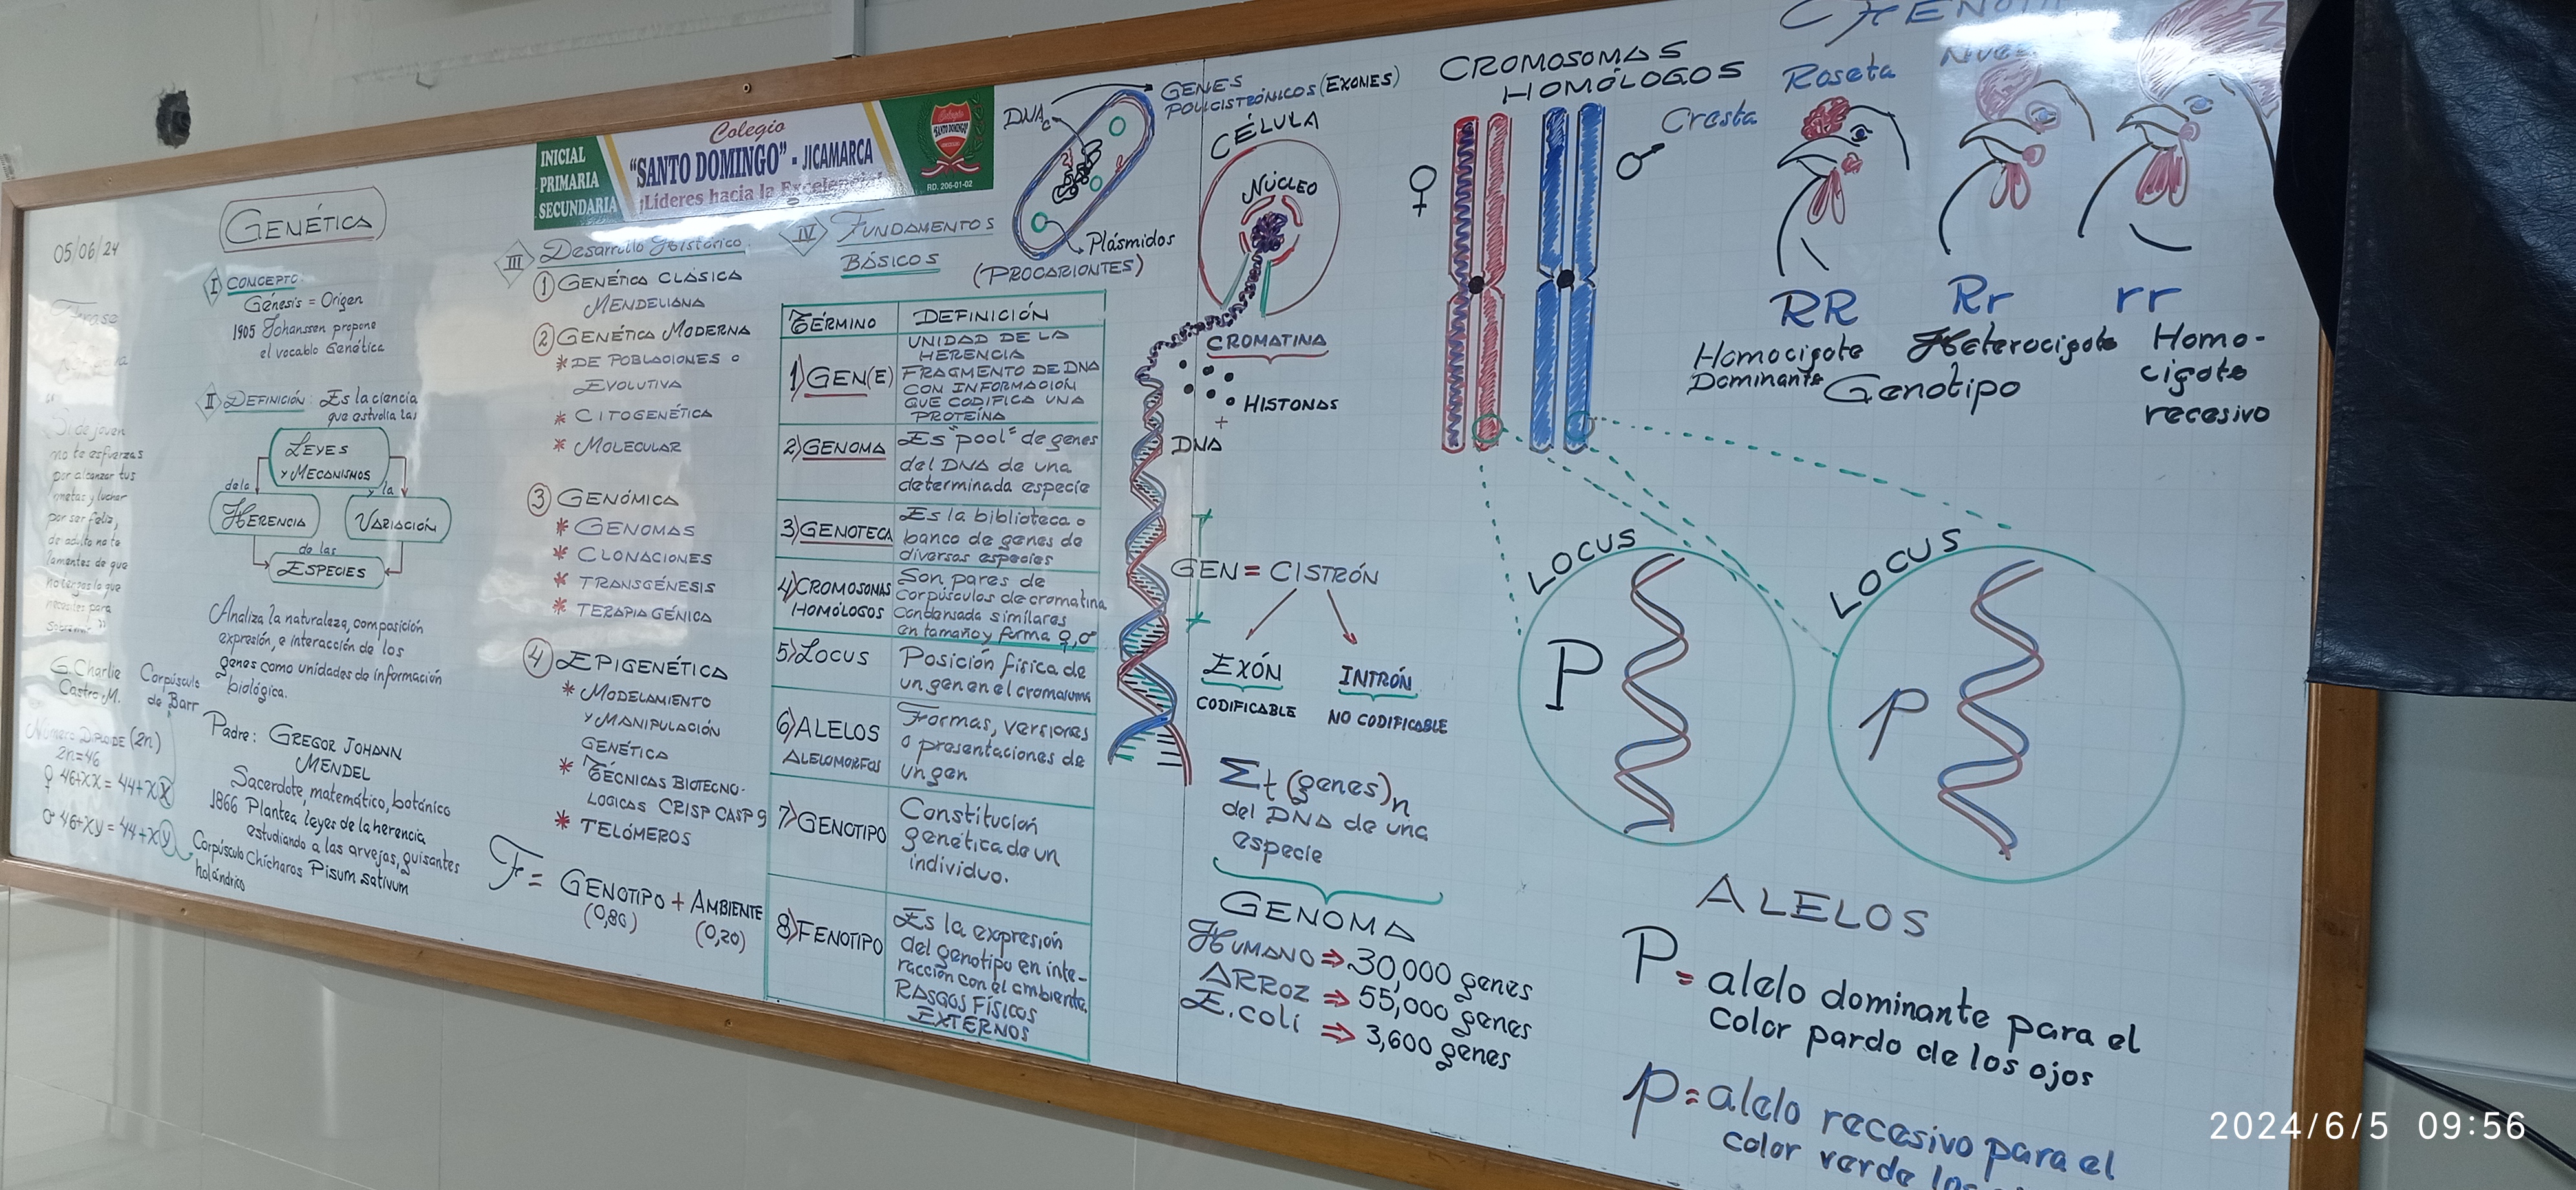 05/06/24
Frase
Si de joven
no te esfuerzas
por alcanzar tus
metas y luchar
por ser feliz,
de adulto no te
lamentes de que
no tengas lo que
necesites para
G. Charlie
Castro M.
Corpúsculo
de Barr
Número DIPLOIDE (2n)
2n=46
♀ 46+XX = 44+XX
♂ 46+XY = 44+XY
Corpúsculo
holándrico
GENÉTICA
I CONCEPTO:
Génesis = Origen
1905 Johanssen propone
el vocablo Genética
II DEFINICIÓN: Es la ciencia
que estudia las
LEYES
Y MECANISMOS
de la
y la
HERENCIA
VARIACIÓN
de las
ESPECIES
Analiza la naturaleza, composición
expresión, e interacción de los
genes como unidades de información
biológica.
Padre: GREGOR JOHANN
MENDEL
Sacerdote, matemático, botánico
1866 Plantea leyes de la herencia
estudiando a las arvejas, guisantes
Chícharos Pisum sativum
INICIAL
PRIMARIA
SECUNDARIA
Colegio
"SANTO DOMINGO" - JICAMARCA
¡Líderes hacia la Excelencia!
Colegio
SANTO DOMINGO
RD. 206-01-02
III Desarrollo Histórico
1 GENÉTICA CLÁSICA
MENDELIANA
2 GENÉTICA MODERNA
* DE POBLACIONES o
EVOLUTIVA
* CITOGENÉTICA
* MOLECULAR
3 GENÓMICA
* GENOMAS
* CLONACIONES
* TRANSGÉNESIS
* TERAPIA GÉNICA
4 EPIGENÉTICA
* MODELAMIENTO
Y MANIPULACIÓN
GENÉTICA
* TÉCNICAS BIOTECNO-
LOGICAS CRISP CASP 9
* TELÓMEROS
F = GENOTIPO + AMBIENTE
(0,80) (0,20)
IV FUNDAMENTOS
BÁSICOS
TÉRMINO DEFINICIÓN
1) GEN(E)
UNIDAD DE LA
HERENCIA
FRAGMENTO DE DNA
CON INFORMACIÓN
QUE CODIFICA UNA
PROTEÍNA
2) GENOMA
Es "pool" de genes
del DNA de una
determinada especie
3) GENOTECA
Es la biblioteca o
banco de genes de
diversas especies
4) CROMOSOMAS
HOMÓLOGOS
Son pares de
corpúsculos de cromatina
condensada similares
en tamaño y forma ♀, ♂
5) LOCUS
Posición física de
un gen en el cromosoma
6) ALELOS
ALELOMORFOS
Formas, versiones
o presentaciones de
un gen
7) GENOTIPO
Constitución
genética de un
individuo.
8) FENOTIPO
Es la expresión
del genotipo en inte-
racción con el ambiente.
RASGOS FÍSICOS
EXTERNOS
DNAc
GENES
POLICISTRÓNICOS (EXONES)
Plásmidos
(PROCARIONTES)
CÉLULA
NÚCLEO
CROMATINA
HISTONAS
+
DNA
GEN = CISTRÓN
EXÓN
CODIFICABLE
INTRÓN
NO CODIFICABLE
Σt (genes)n
del DNA de una
especie
GENOMA
HUMANO ⇒ 30,000 genes
ARROZ ⇒ 55,000 genes
E. coli ⇒ 3,600 genes
CROMOSOMAS
HOMÓLOGOS
♀
♂
Cresta
Roseta
RR
Homocigote
Dominante
Rr
Heterocigote
rr
Homo-
cigote
recesivo
Genotipo
LOCUS
P
LOCUS
p
ALELOS
P = alelo dominante para el
color pardo de los ojos
p = alelo recesivo para el
color verde
2024/6/5 09:56